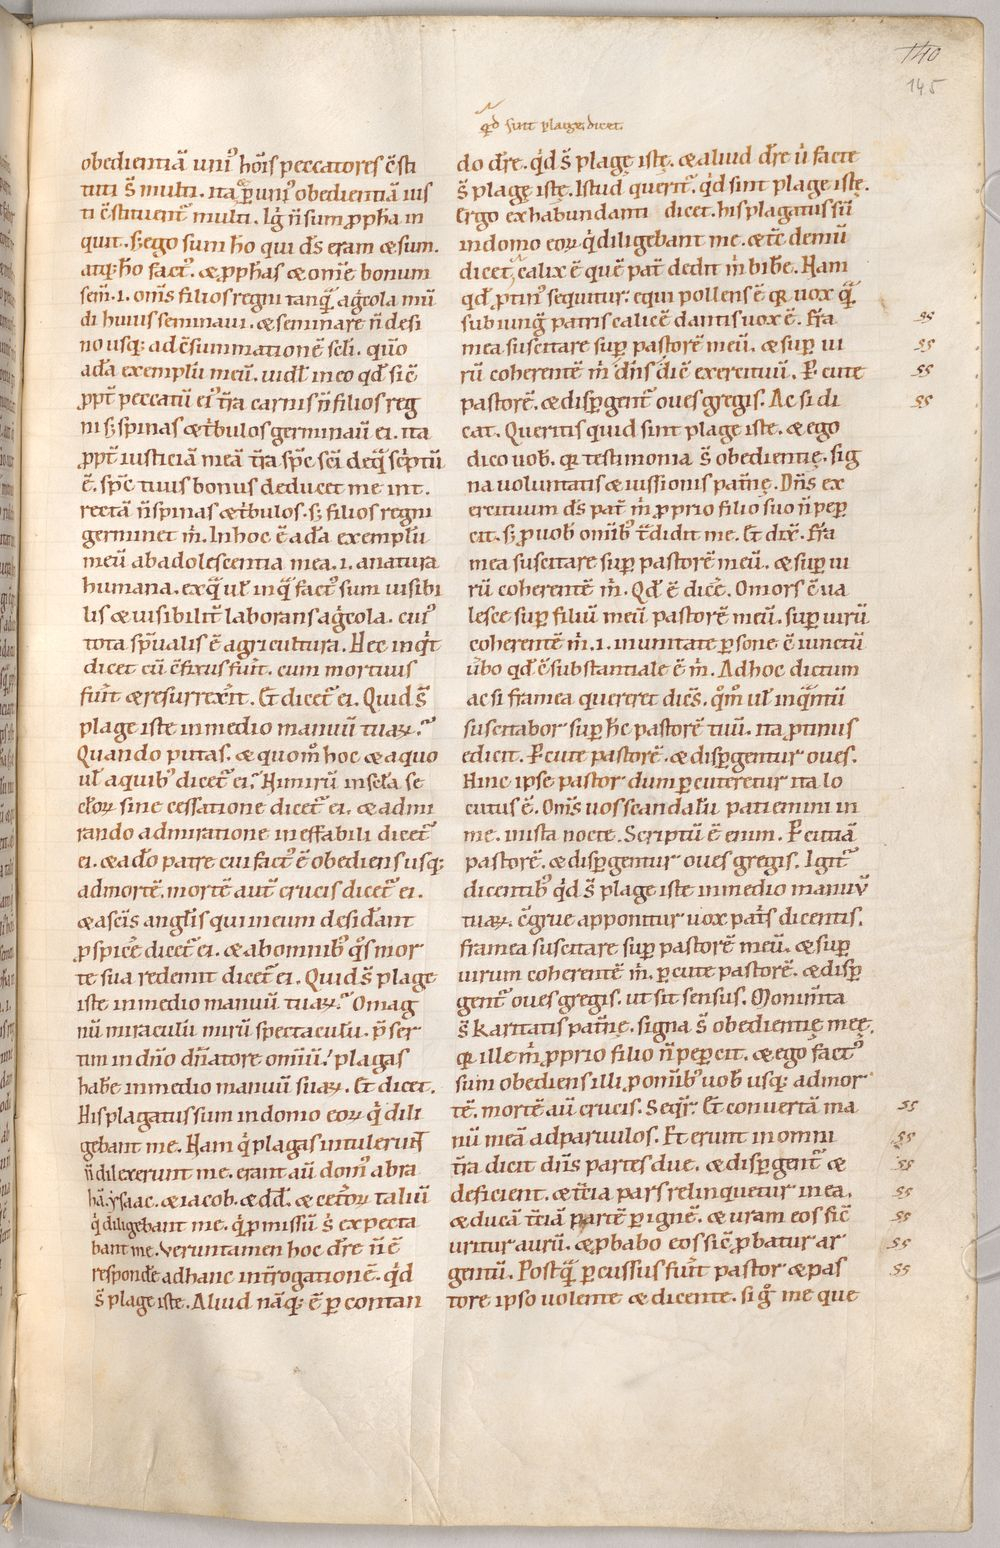 140
145
qd sint plage, dicet.
obedientiā uni᷒ hoīs peccatores c̄sti
tuti s̄ multi. ita ꝑ uni᷒ obedientiā ius
ti c̄stituent᷑ multi. Igͥ n̄ sum ꝓpha in
quit. sꝫ ego sum ho qui ds̄ eram ⁊ sum.
atqꝫ ho fact᷒. ⁊ ꝓphas ⁊ om̄e bonum
sem̄. i. om̄s filios regni tanquā agͥcola mū
di huius seminaui. ⁊ seminare n̄ desi
no usqꝫ ad c̄summationē scl̄i. quō
adā exemplū meū. uidl̄ in eo qd̄ sic̄
ꝓpt̄ peccatū ei᷒ tr̄a carnis n̄ filios reg
ni sꝫ spinas ⁊ tͥbulos germinauī ei. ita
ꝓpt̄ iusticiā meā tr̄a spc̄ sc̄i de qͣ scͥptū
ē. spc̄ tuus bonus deducet me in t̄.
rectā n̄ spinas ⁊ tͥbulos. sꝫ filios regni
germinet m̄. In hoc ē adā exemplū
meū ab adolescentia mea. i. a natura
humana. ex qͣ ul̄ in qͣ fact᷒ sum uisibi
lis ⁊ uisibilit̄ laborans agͥcola. cui᷒
tota sp̄ualis ē agricultura. Hec inqͥt
dicet cū c̄fixus fuīt. cum mortuus
fuīt ⁊ resurrex̄it. Et dicet᷑ ei. Quid s̄
plage iste in medio manuū tuaꝝ?
Quando putas. ⁊ quom̊ hoc ⁊ a quo
ul̄ a quib᷒ dicet᷑ ei? Nimirū in sc̄la se
cl̄oꝝ sine cessatione dicet᷑ ei. ⁊ admi
rando admiratione ineffabili dicet᷑
ei. ⁊ a do patre cui fact᷒ ē obediens usqꝫ
ad mortē. mortē aut̄ crucis dicet᷑ ei.
⁊ a sc̄is angl̄is qui in eum desid̄ant
ꝓspice dicet᷑ ei. ⁊ ab omnib᷒ qͦs mor
te sua redemit dicet᷑ ei. Quid s̄ plage
iste in medio manuū tuaꝝ? O mag
nū miraculū mirū spectaculū. p̄ser
tim in dn̄o dn̄atore omīū! plagas
hab̄e in medio manuū suaꝝ. Et dicet.
His plagatus sum in domo eoꝝ qͥ dili
gebant me. Nam qͥ plagas intulerunt
n̄ dilexerunt me. erant aū dom᷒ abra
hā. ysaac. ⁊ iacob. ⁊ dd̄. ⁊ cet̄oꝝ talium
qͥ diligebant me. qͥ ꝓmissū s̄ expecta
bant me. Veruntamen hoc dr̄e n̄ ē
respond̄e ad hanc int̄rogationē. qͥd
s̄ plage iste. Aliud nāqꝫ ē ꝑcontan
do dr̄e. qͥd s̄ plagę istę. ⁊ aliud dr̄e u̍ facte
s̄ plagę istę. Istud querit᷑. qͥd sint plage istę.
Ergo ex habundanti dicet. his plagatus sū
in domo eoꝝ qͥ diligebant me. ⁊ tc̄ demū
dicet, calix ē quē pat̄ dedit m̄ bib̄e. Nam
qd̄ ꝓtin᷒ sequitur: equipollens ē qꝛ uox quā
subiungͭ patris calicē dantis uox ē. Fr̄a
mea suscitare suꝑ pastorē meū. ⁊ suꝑ ui
rū coherentē m̄ dn̄s dic̄ exercituū. Pcute
pastorē. ⁊ disꝑgent᷑ oues gregis. Ac si di
cat. Queritis quid sint plage iste. ⁊ ego
dico uob̄. qꝛ testimonia s̄ obedientię. sig
na uoluntatis ⁊ iussionis patn̄ę. Dn̄s ex
ercituum ds̄ pat̄ m̄ ꝓprio filio suo n̄ peꝑ
cit. sꝫ ꝓ uob̄ omīb᷒ t̄didit me. Et dix̄. Fr̄a
mea suscitare suꝑ pastorē meū. ⁊ suꝑ ui
rū coherentē m̄. Qd̄ ē dic̄e. O mors ēua
lesce suꝑ filiū meū pastorē meū. suꝑ uirū
coherentē m̄. i. in unitate ꝑsone ē iunctū
u̍bo qd̄ c̄substantiale ē m̄. Ad hoc dictum
ac si framea quereret dic̄s. qͦm̊ ul̄ inqͣntū
suscitabor suꝑ hc̄ pastorē tuū. ita ꝓtinus
edicit. Pcute pastorē. ⁊ disꝑgentur oues.
Hinc ipse pastor dum ꝑcuteretur ita lo
cutus ē. Om̄s uos scandalū patiemini in
me. in ista nocte. Scriptū ē enim. Pcutiā
pastorē. ⁊ disꝑgentur oues gregis. Igit᷑
dicentib᷒ qͥd s̄ plage iste in medio manuū
tuaꝝ. c̄grue apponitur uox pat̄s dicentis.
framea suscitare suꝑ pastorē meū. ⁊ suꝑ
uirum coherentē m̄. ꝑcute pastorē. ⁊ disꝑ
gent᷑ oues gregis. ut sit sensus. Monim̄ta
s̄ karitatis patn̄ę. signa s̄ obedientię meę.
qꝛ ille m̄ ꝓprio filio n̄ peꝑcit. ⁊ ego fact᷒
sum obediens illi ꝓ omīb᷒ uob̄ usqꝫ ad mor
tē. mortē aū crucis. Seqͥt᷑. Et conuertā ma
nū meā ad paruulos. Et erunt in omni
tr̄a dicit dn̄s partes due. ⁊ disꝑgent᷑ ⁊
deficient. ⁊ tc̄ia pars relinquetur in ea.
⁊ ducā tc̄iā partē ꝑ ignē. ⁊ uram eos sic̄
uritur aurū. ⁊ ꝓbabo eos sic̄ ꝓbatur ar
gentū. Postquā ꝑcussus fuīt pastor ⁊ pas
tore ipso uolente ⁊ dicente. si gͦ me que